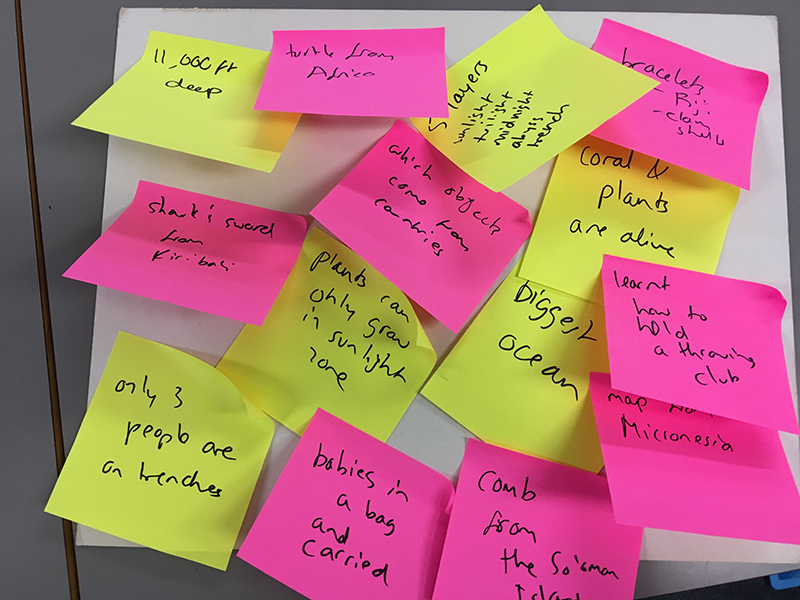 11,000 ft
deep
turtle from
Africa
5 layers
sunlight
twilight
midnight
abyss
trench
bracelets
- Fiji
- clam
shells
which objects
come from
countries
coral &
plants
are alive
shark's sword
from
Kiribati
plants can
only grow
in sunlight
zone
biggest
ocean
learnt
how to
hold
a throwing
club
map from
Micronesia
only 3
people are
on trenches
babies in
a bag
and
carried
comb
from
the Solomon